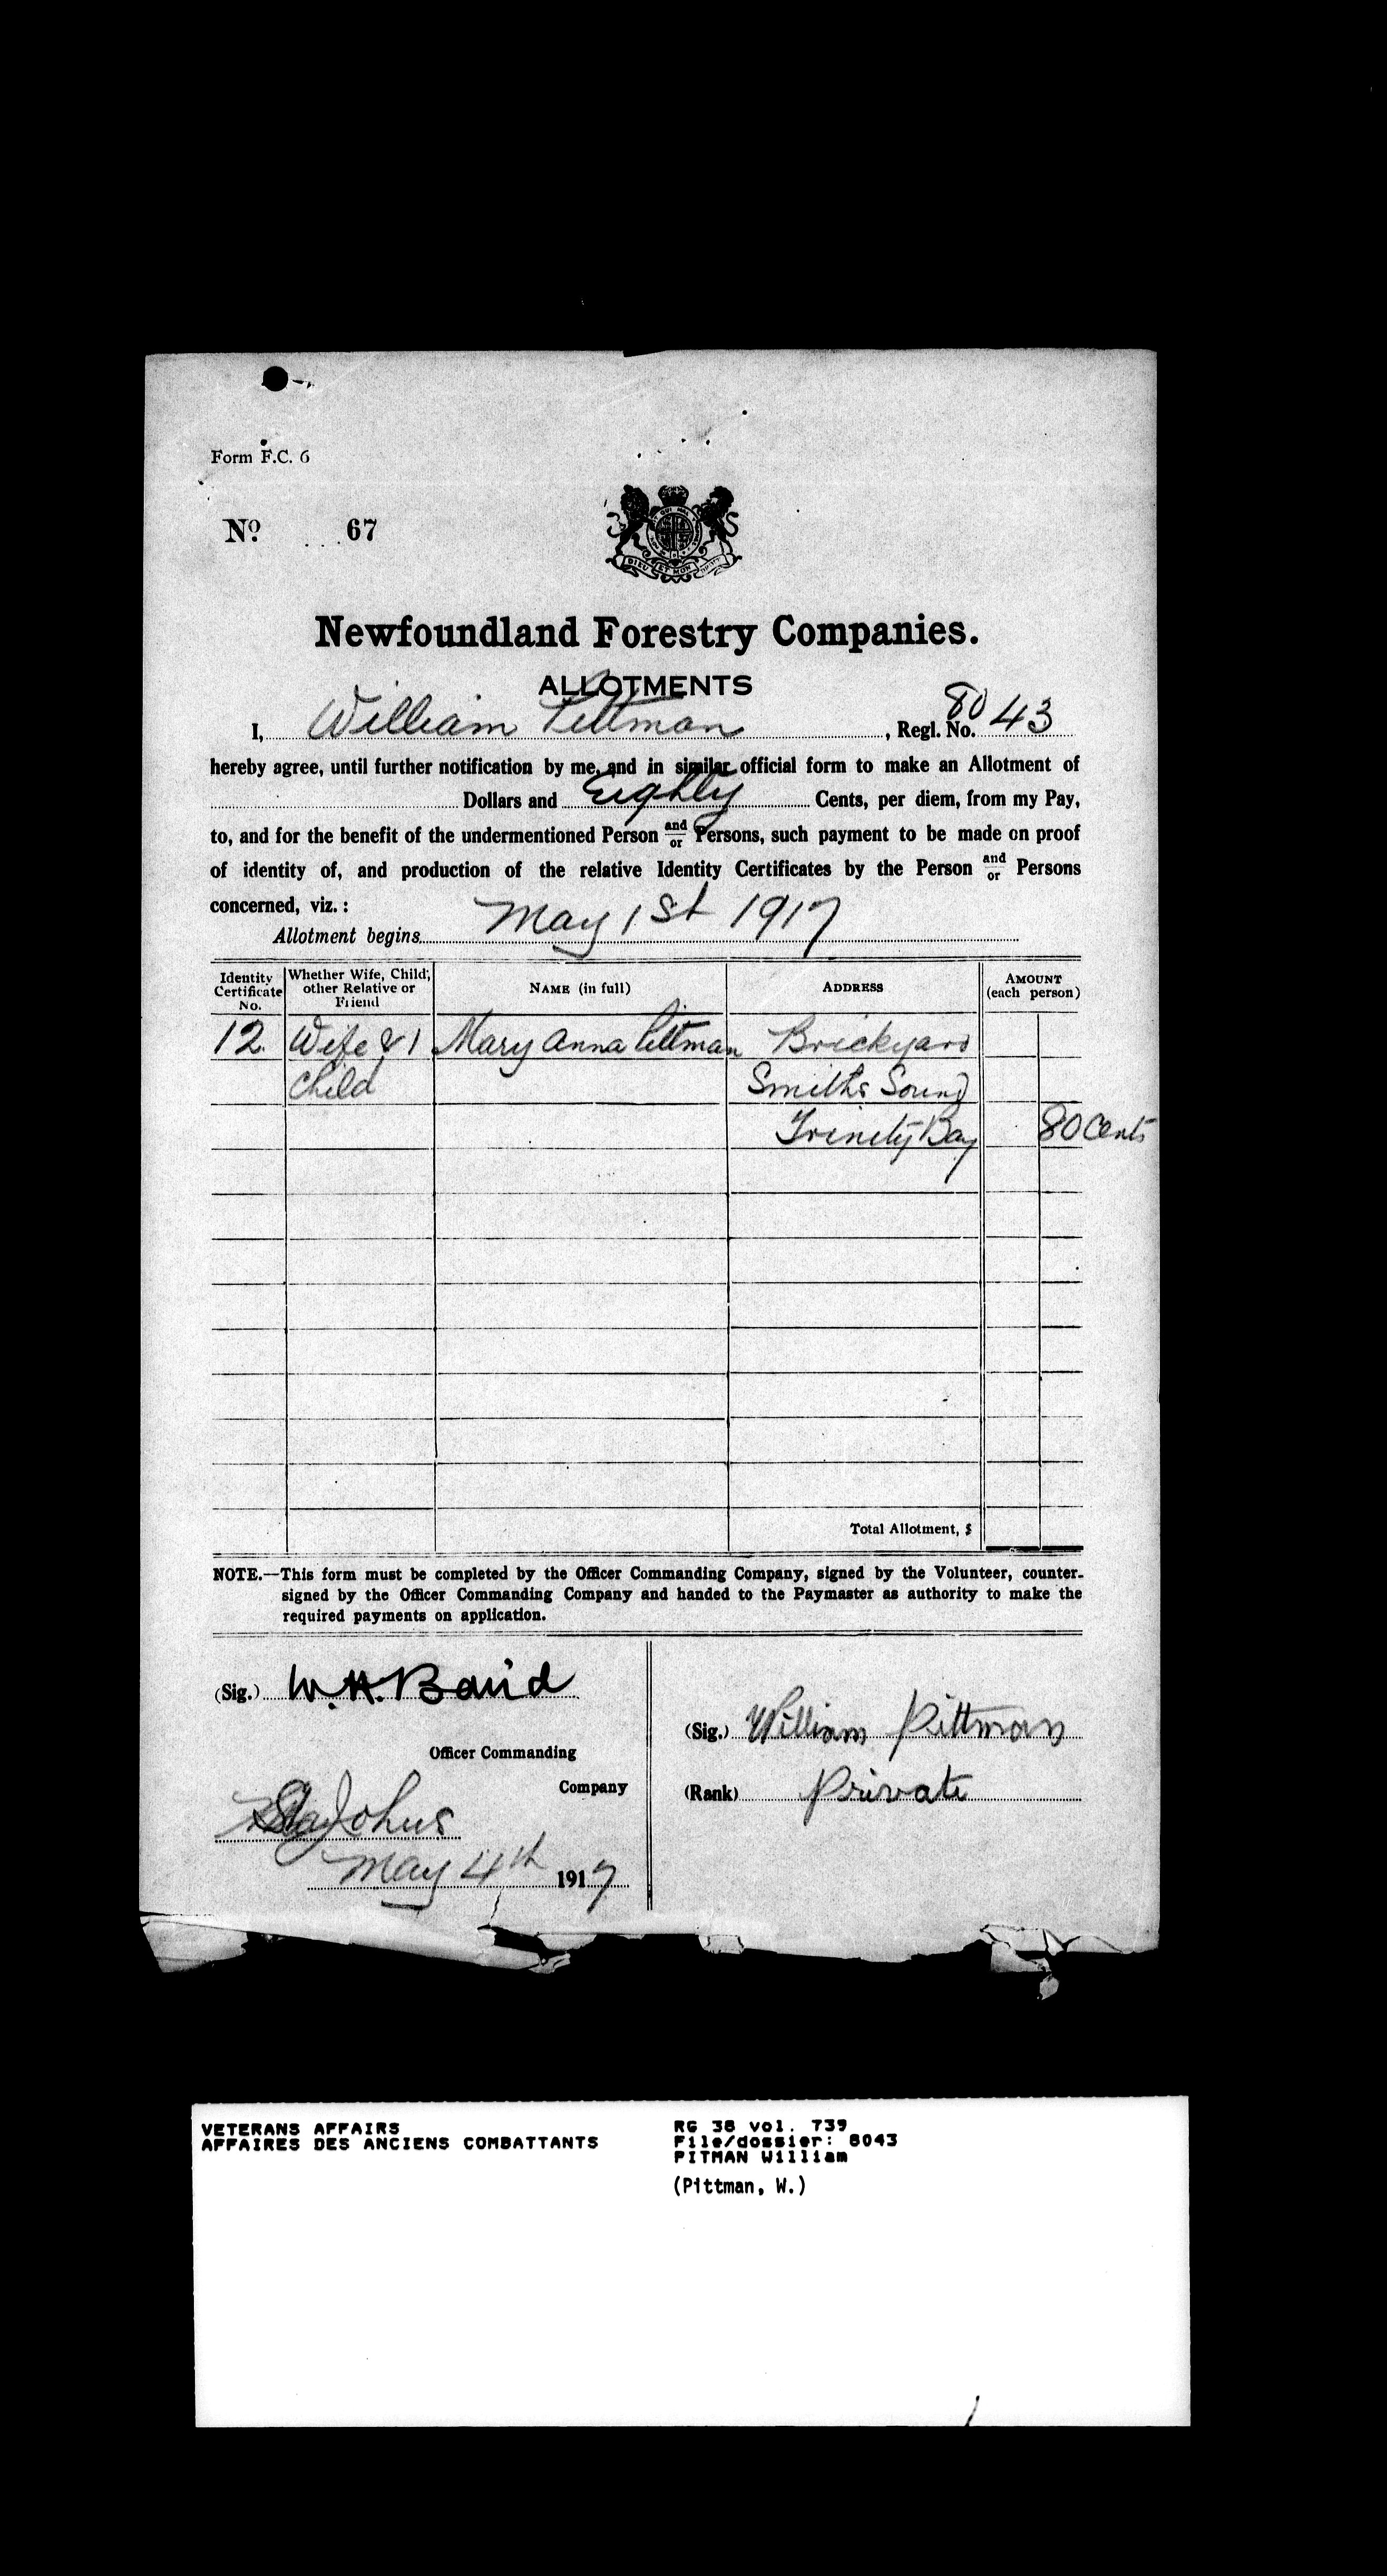 Form F.C. 6
No. 67
DIEU ET MON DROIT
Newfoundland Forestry Companies.
ALLOTMENTS
I, William Pittman, Regl. No. 8043
hereby agree, until further notification by me, and in similar official form to make an Allotment of
Dollars and Eighty Cents, per diem, from my Pay,
to, and for the benefit of the undermentioned Person and/or Persons, such payment to be made on proof
of identity of, and production of the relative Identity Certificates by the Person and/or Persons
concerned, viz. :
Allotment begins May 1st 1917
Identity Certificate No. Whether Wife, Child, other Relative or Friend NAME (in full) ADDRESS AMOUNT (each person)
12. Wife & 1 Mary Anna Pittman Brickyard
Child Smiths Sound
Trinity Bay 80 Cents
Total Allotment, $
NOTE.—This form must be completed by the Officer Commanding Company, signed by the Volunteer, counter-
signed by the Officer Commanding Company and handed to the Paymaster as authority to make the
required payments on application.
(Sig.) W. H. Baird
(Sig.) William Pittman
Officer Commanding
Company
(Rank) Private
St Johns
May 4th 1917
VETERANS AFFAIRS RG 38 vol. 739
AFFAIRES DES ANCIENS COMBATTANTS File/dossier: 8043
PITMAN William
(Pittman, W.)